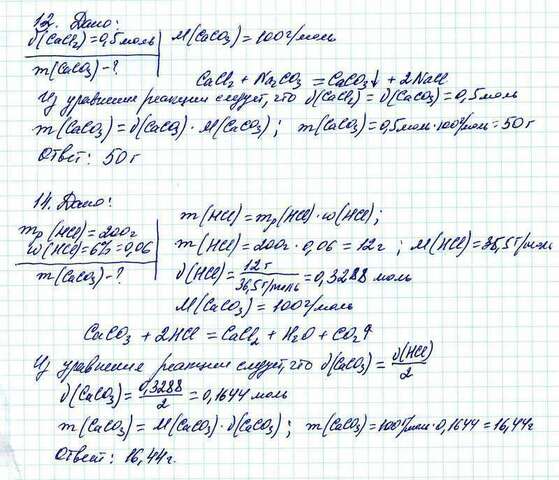 12. Дано:
ν(CaCl₂)=0,5 моль | M(CaCO₃)=100г/моль
m(CaCO₃)-?
CaCl₂ + Na₂CO₃ = CaCO₃↓ + 2NaCl
Из уравнения реакции следует, что ν(CaCl₂)=ν(CaCO₃)=0,5моль
m(CaCO₃)=ν(CaCO₃)·M(CaCO₃); m(CaCO₃)=0,5моль·100г/моль=50г
Ответ: 50г
14. Дано:
mр(HCl)=200г
w(HCl)=6%=0,06
m(CaCO₃)-?
m(HCl)=mр(HCl)·w(HCl);
m(HCl)=200г·0,06=12г; M(HCl)=36,5г/моль
ν(HCl)=12г/36,5г/моль=0,3288 моль
M(CaCO₃)=100г/моль
CaCO₃ + 2HCl = CaCl₂ + H₂O + CO₂↑
Из уравнения реакции следует, что ν(CaCO₃)=ν(HCl)/2
ν(CaCO₃)=0,3288/2=0,1644 моль
m(CaCO₃)=M(CaCO₃)·ν(CaCO₃); m(CaCO₃)=100г/моль·0,1644=16,44г
Ответ: 16,44г.